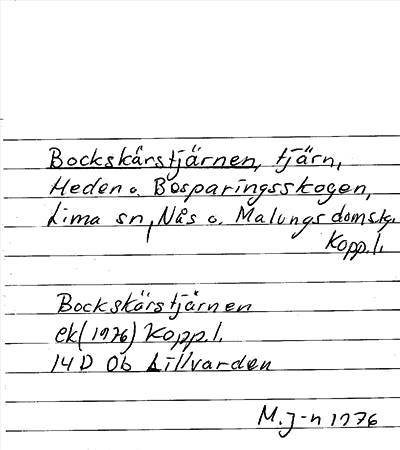 Bockskärstjärnen, tjärn,
Heden o. Bösparingsskogen,
Lima sn, Nås o. Malungs domsk.
Kopp.l.
Bockskärstjärnen
ek (1976) Kopp.l.
14 D 0b Lillvarden
M.J-n 1976